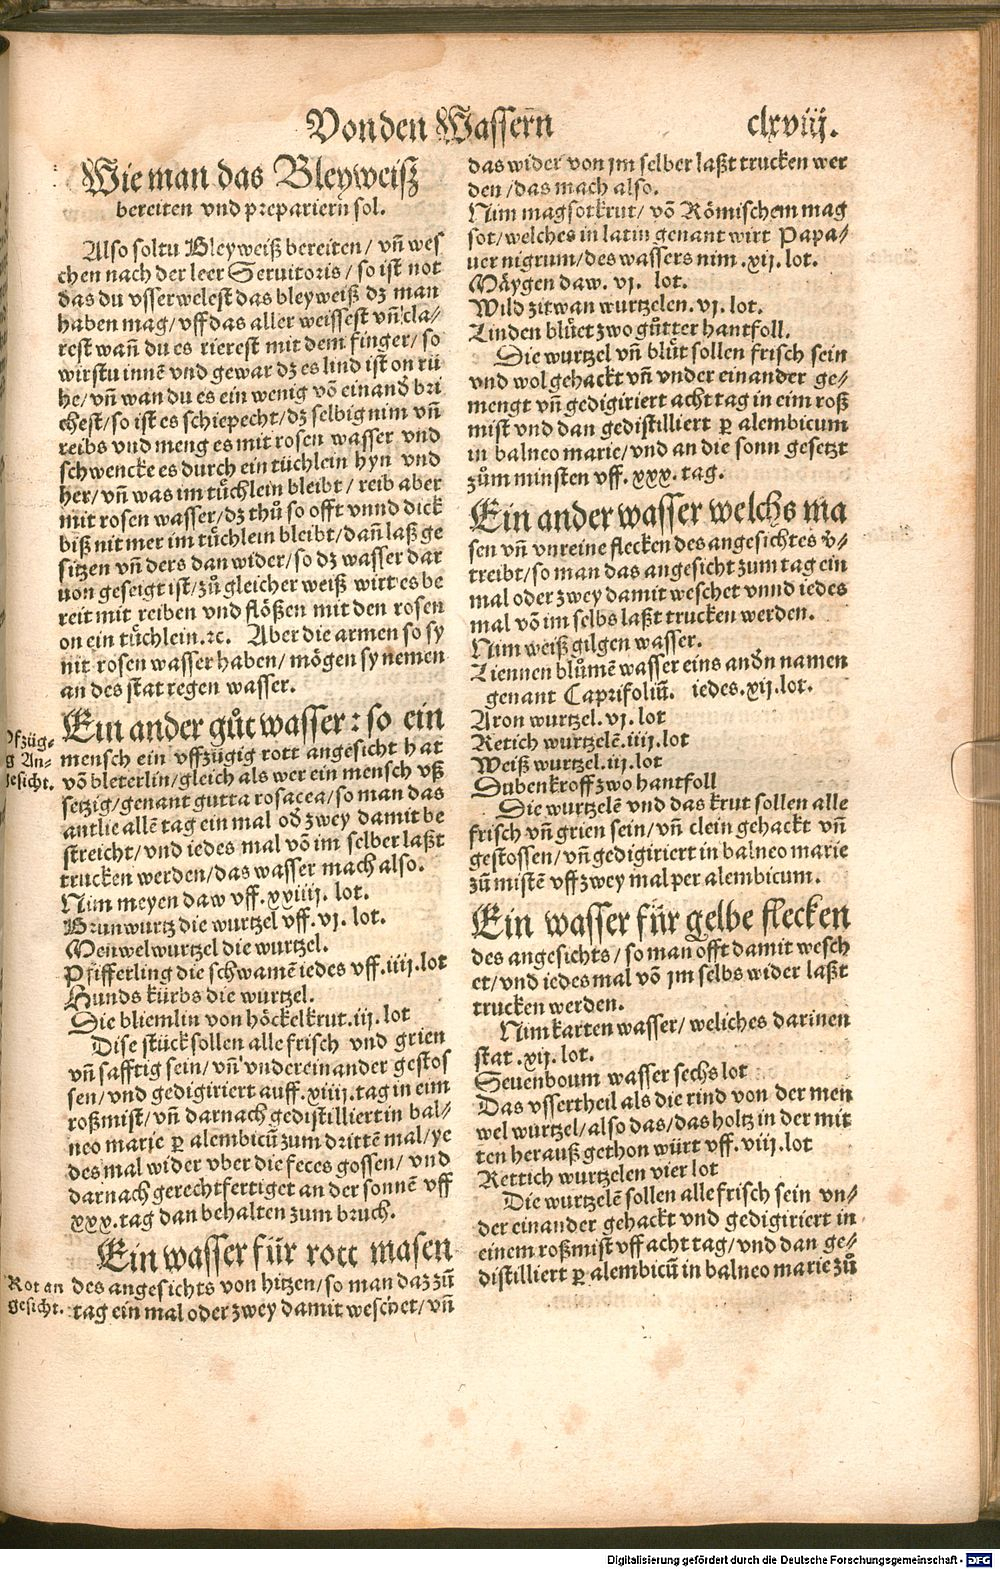 Von den Wassern̄
clxviij.
Wie man das Bleyweiß
bereiten vnd preparieren sol.
Also soltu Bleyweiß bereiten/ vn̄ wes
chen nach der leer Seruitoris/ so ist not
das du vsserwelest das bleyweiß dz man
haben mag/ vff das aller weissest vn̄ cla⸗
rest wan̄ du es rierest mit dem finger/ so
wirstu innē vnd gewar dz es lind ist on rü
he/ vn̄ wan du es ein wenig vō einand̄ bri
chest/ so ist es schiepecht/ dz selbig nim vn̄
reibs vnd meng es mit rosen wasser vnd
schwencke es durch ein tüchlein hyn vnd
her/ vn̄ was im tüchlein bleibt/ reib aber
mit rosen wasser/ dz thů so offt vnnd dick
biß nit mer im tüchlein bleibt/ dan̄ laß ge
sitzen vn̄ ders dan wider/ so dz wasser dar
uon geseigt ist/ zů gleicher weiß wirt es be
reit mit reiben vnd flößen mit den rosen
on ein tüchlein.ꝛc. Aber die armen so sy
nit rosen wasser haben/ mögen sy nemen
an des stat regen wasser.
Ein ander gůt wasser: so ein
mensch ein vffzügig rott angesicht hat
vō bleterlin/ gleich als wer ein mensch vß
setzig/ genant gutta rosacea/ so man das
antlie allē tag ein mal od̄ zwey damit be
streicht/ vnd iedes mal vō im selber laßt
trucken werden/ das wasser mach also.
Nim meyen daw vff. xxiiij. lot.
Brunwurtz die wurtzel vff. vj. lot.
Menwelwurtzel die wurtzel.
Pfifferling die schwamē iedes vff. iiij. lot
Hunds kürbs die wurtzel.
Die bliemlin von höckelkrut. iij. lot
Dise stück sollen alle frisch vnd grien
vn̄ safftig sein/ vn̄ vndereinander gestos
sen/ vnd gedigiriert auff. xiiij. tag in eim
roßmist/ vn̄ darnach gedistilliert in bal⸗
neo marie ꝑ alembicū zum drittē mal/ ye
des mal wider vber die feces gossen/ vnd
darnach gerechtfertiget an der sonnē vff
xxx. tag dan behalten zum bruch.
Ein wasser für rott masen
des angesichts von hitzen/ so man daz zů
tag ein mal oder zwey damit weschet/ vn̄
fzüg⸗
g An⸗
gesicht.
Rot an
gesicht.
das wider von jm selber laßt trucken wer
den/ das mach also.
Nim magsotkrut/ vō Römischem mag
sot/ welches in latin genant wirt Papa⸗
uer nigrum/ des wassers nim. xij. lot.
Mäygen daw. vj. lot.
Wild zitwan wurtzelen. vj. lot.
Linden blůet zwo gůtter hantfoll.
Die wurtzel vn̄ blůt sollen frisch sein
vnd wol gehackt vn̄ vnder einander ge⸗
mengt vn̄ gedigiriert acht tag in eim roß
mist vnd dan gedistilliert ꝑ alembicum
in balneo marie/ vnd an die sonn gesetzt
zům minsten vff. xxx. tag.
Ein ander wasser welchs ma
sen vn̄ vnreine flecken des angesichtes v̄⸗
treibt/ so man das angesicht zum tag ein
mal oder zwey damit weschet vnnd iedes
mal vō im selbs laßt trucken werden.
Nim weiß gilgen wasser.
Liennen blůmē wasser eins and̄n namen
genant Caprifoliū. iedes. xij. lot.
Aron wurtzel. vj. lot
Retich wurtzelē. iiij. lot
Weiß wurtzel. iij. lot
Dubenkroff zwo hantfoll
Die wurtzelē vnd das krut sollen alle
frisch vn̄ grien sein/ vn̄ clein gehackt vn̄
gestossen/ vn̄ gedigiriert in balneo marie
zū mistē vff zwey mal per alembicum.
Ein wasser für gelbe flecken
des angesichts/ so man offt damit wesch
et/ vnd iedes mal vō jm selbs wider laßt
trucken werden.
Nim karten wasser/ weliches darinen
stat. xij. lot.
Seuenboum wasser sechs lot
Das vssertheil als die rind von der men
wel wurtzel/ also das/ das holtz in der mit
ten herauß gethon würt vff. viij. lot
Rettich wurtzelen vier lot
Die wurtzelē sollen alle frisch sein vn⸗
der einander gehackt vnd gedigiriert in
einem roßmist vff acht tag/ vnd dan ge⸗
distilliert ꝑ alembicū in balneo marie zů
Digitalisierung gefördert durch die Deutsche Forschungsgemeinschaft - DFG